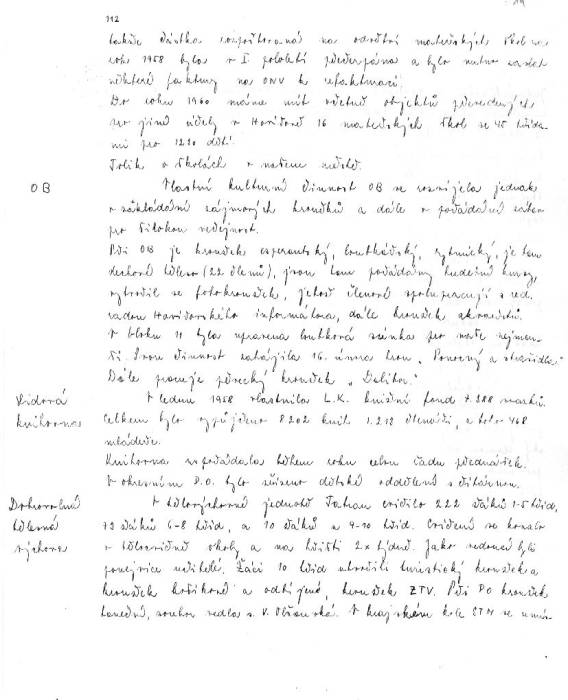 112
takže částka rozpočtovaná na odvětví mateřských škol na
rok 1958 byla v I. pololetí přečerpána a bylo nutno zaslat
některé faktury na ONV k refakturaci.
Do roku 1960 máme mít včetně objektů převedených
pro jiné účely v Havířově 16 mateřských škol se 45 třída-
mi pro 1220 dětí.
Tolik o školách v našem městě.
OB
Vlastní kulturní činnost OB se rozvíjela jednak
v zakládání zájmových kroužků a dále v pořádání
pro širokou veřejnost.
Při OB je kroužek esperantský, loutkářský, rytmický, je tam
dechové těleso (22 členů), jsou tam pořádány hudební kursy,
vytvořil se fotokroužek, jehož členové spolupracují s red.
radou Havířovského informátora, dále kroužek akvaristů.
V bloku 11 byla upravena loutková scénka pro naše nejmen-
ší. Svou činnost zahájila 16. února hrou „Ponocný a strašidla“
Dále pracuje pěvecký kroužek „Dalibor.“
Lidová
knihovna
V lednu 1958 vlastnila L.K. knižní fond 7.288 svazků.
Celkem bylo vypůjčeno 8202 knih 1.212 čtenáři, z toho 468
mládeže.
Knihovna uspořádala během roku celou řadu přednášek.
V okresním D.O. bylo zřízeno dětské oddělení s čítárnou.
Dobrovolná
tělesná
výchova
V tělovýchovné jednotě Tatran cvičilo 222 žáků 1-5 tříd,
72 žáků 6-8 tříd, a 10 žáků z 9-10 tříd. Cvičení se konalo
v tělocvičně školy a na hřišti 2x týdně. Jako vedoucí byli
ponejvíce učitelé. Žáci 10 tříd utvořili turistický kroužek a
kroužek košíkové a odbíjené, kroužek ZTV. Při PO kroužek
taneční, souhru vedla s. V. V krajském kole STM se umís-